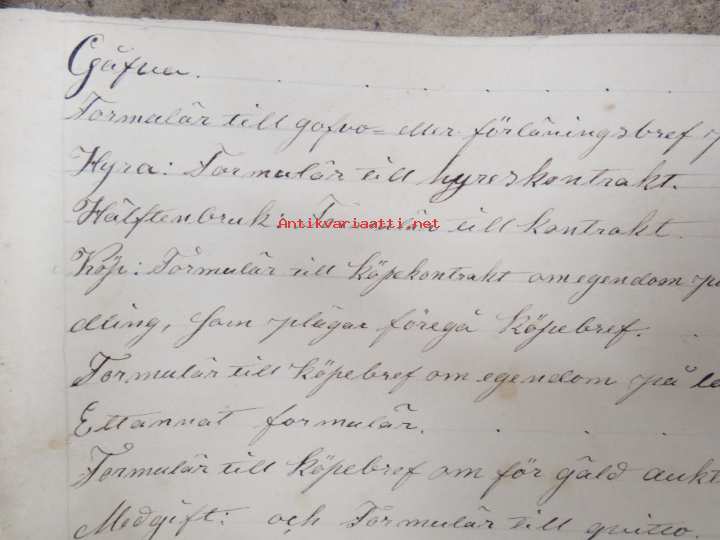 Gåfva.
Formulär till gofvo= eller förläningsbref
Hyra: Formulär till hyreskontrakt.
Hälftenbruk: Formulär till kontrakt.
Antikvariaatti.net
Köp: Formulär till köpekontrakt om egendom på
dling, som plägar föregå köpebref.
Formulär till köpebref om egendom på la
Ett annat formulär.
Formulär till köpebref om för gäld aukt
Medgift: och Formulär till qvitto.